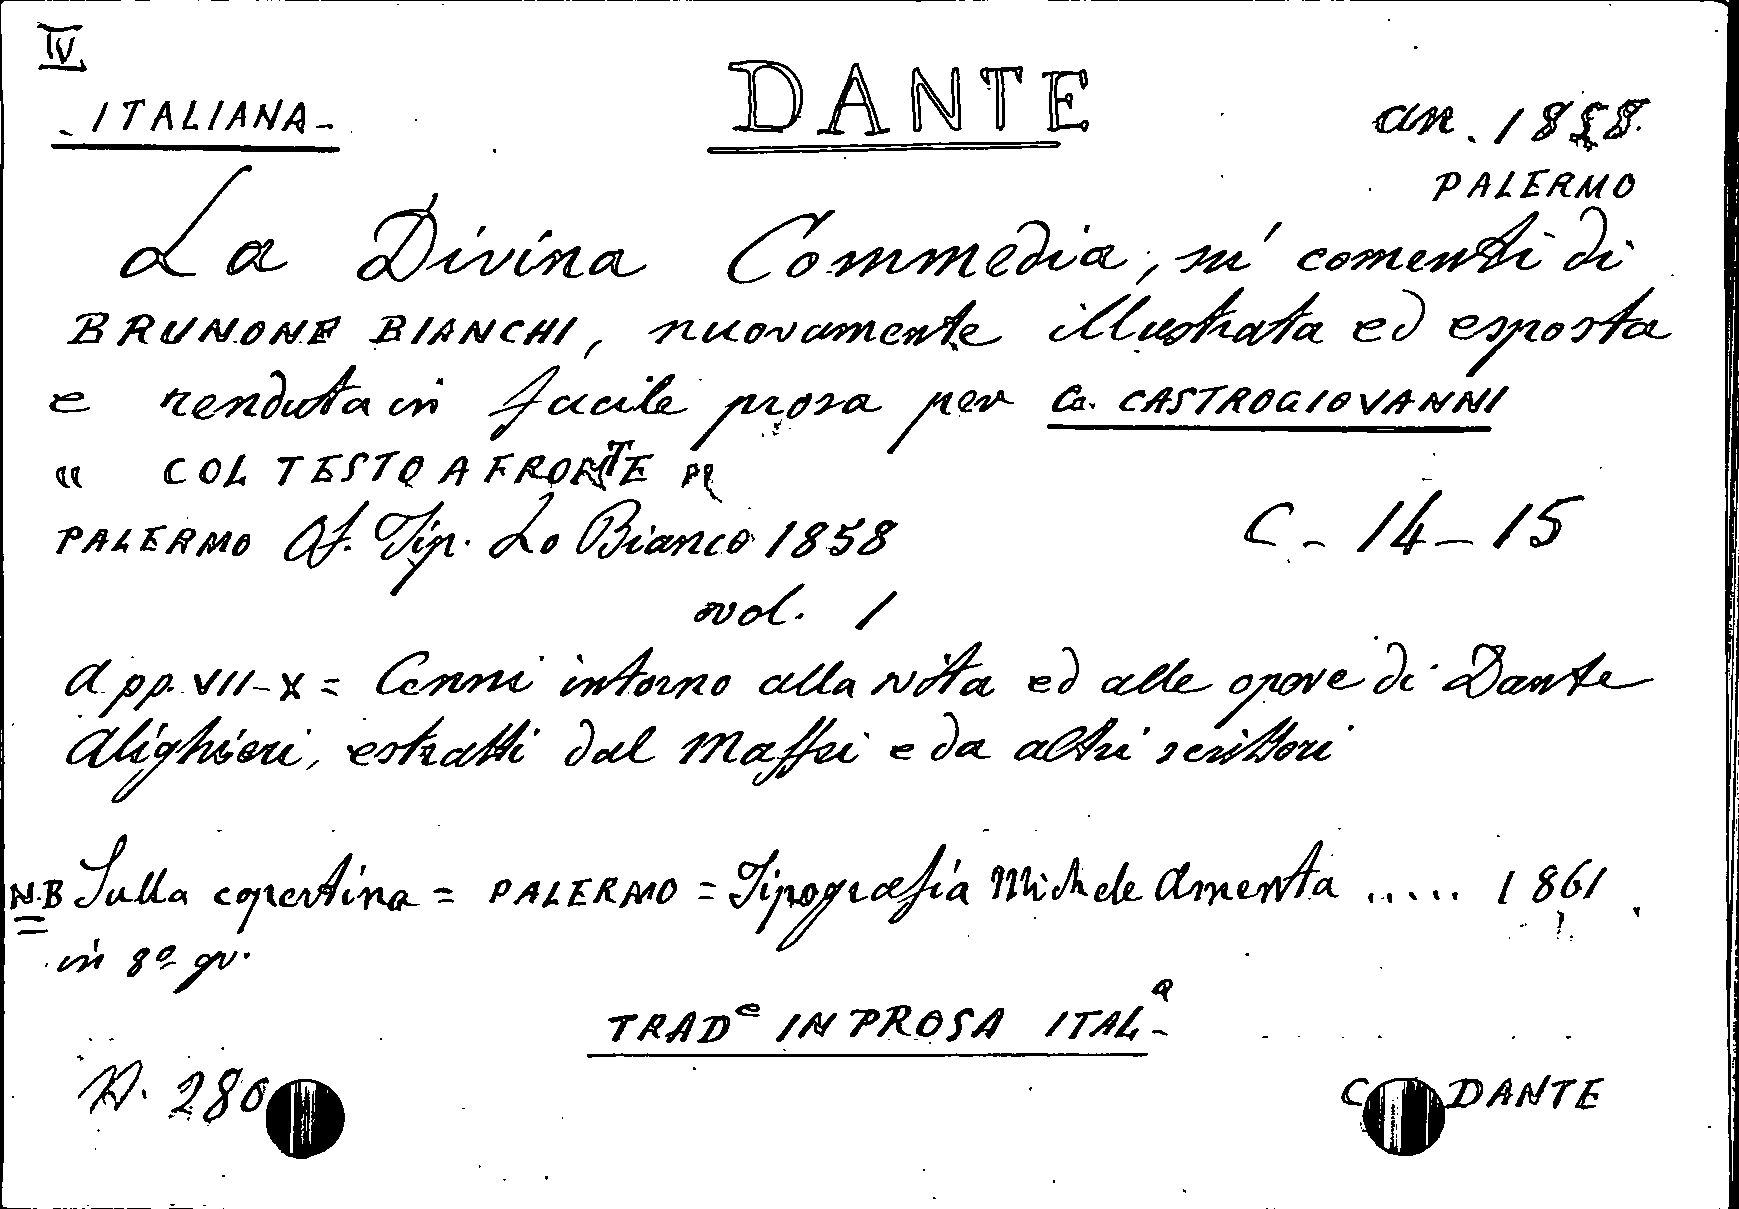 IV
- ITALIANA -
DANTE
an. 1858.
PALERMO
La Divina Commedia, su' comenti di
BRUNONE BIANCHI, nuovamente illustrata ed esposta
e renduta in facile prosa per G. CASTROGIOVANNI
" COL TESTO A FRONTE
PALERMO Of. Tip. Lo Bianco 1858
C - 14 - 15
vol. 1
a pp. VII-X = Cenni intorno alla vita ed alle opere di Dante
Alighieri, estratti dal Maffei e da altri scrittori
N.B Sulla copertina = PALERMO = Tipografia Michele Amenta ..... 1861
in 8º gr.
TRADe IN PROSA ITALa
N. 280
C DANTE